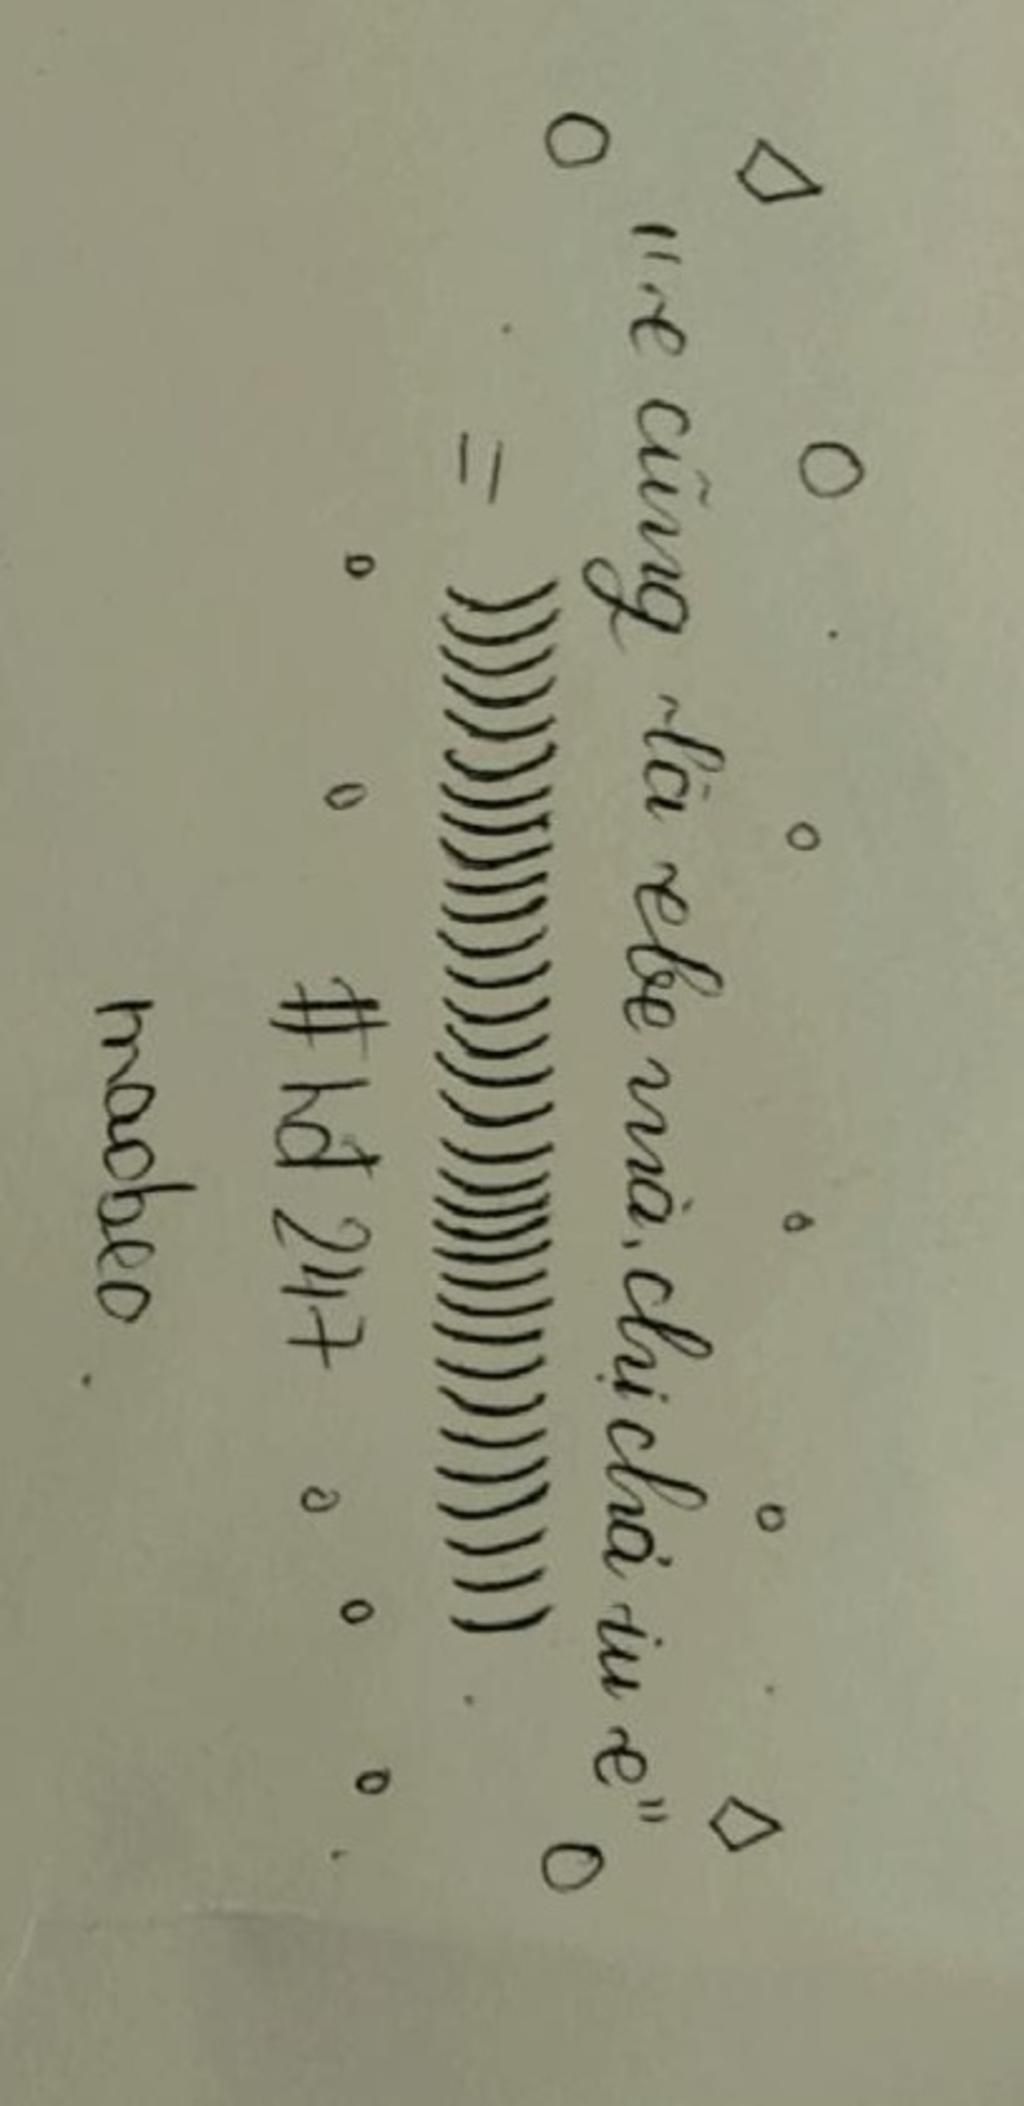 "e cũng là ebe mà, chị chả iu e"
= ))))))))))))))))))))))))))))))))))
#hd 247
maobeo